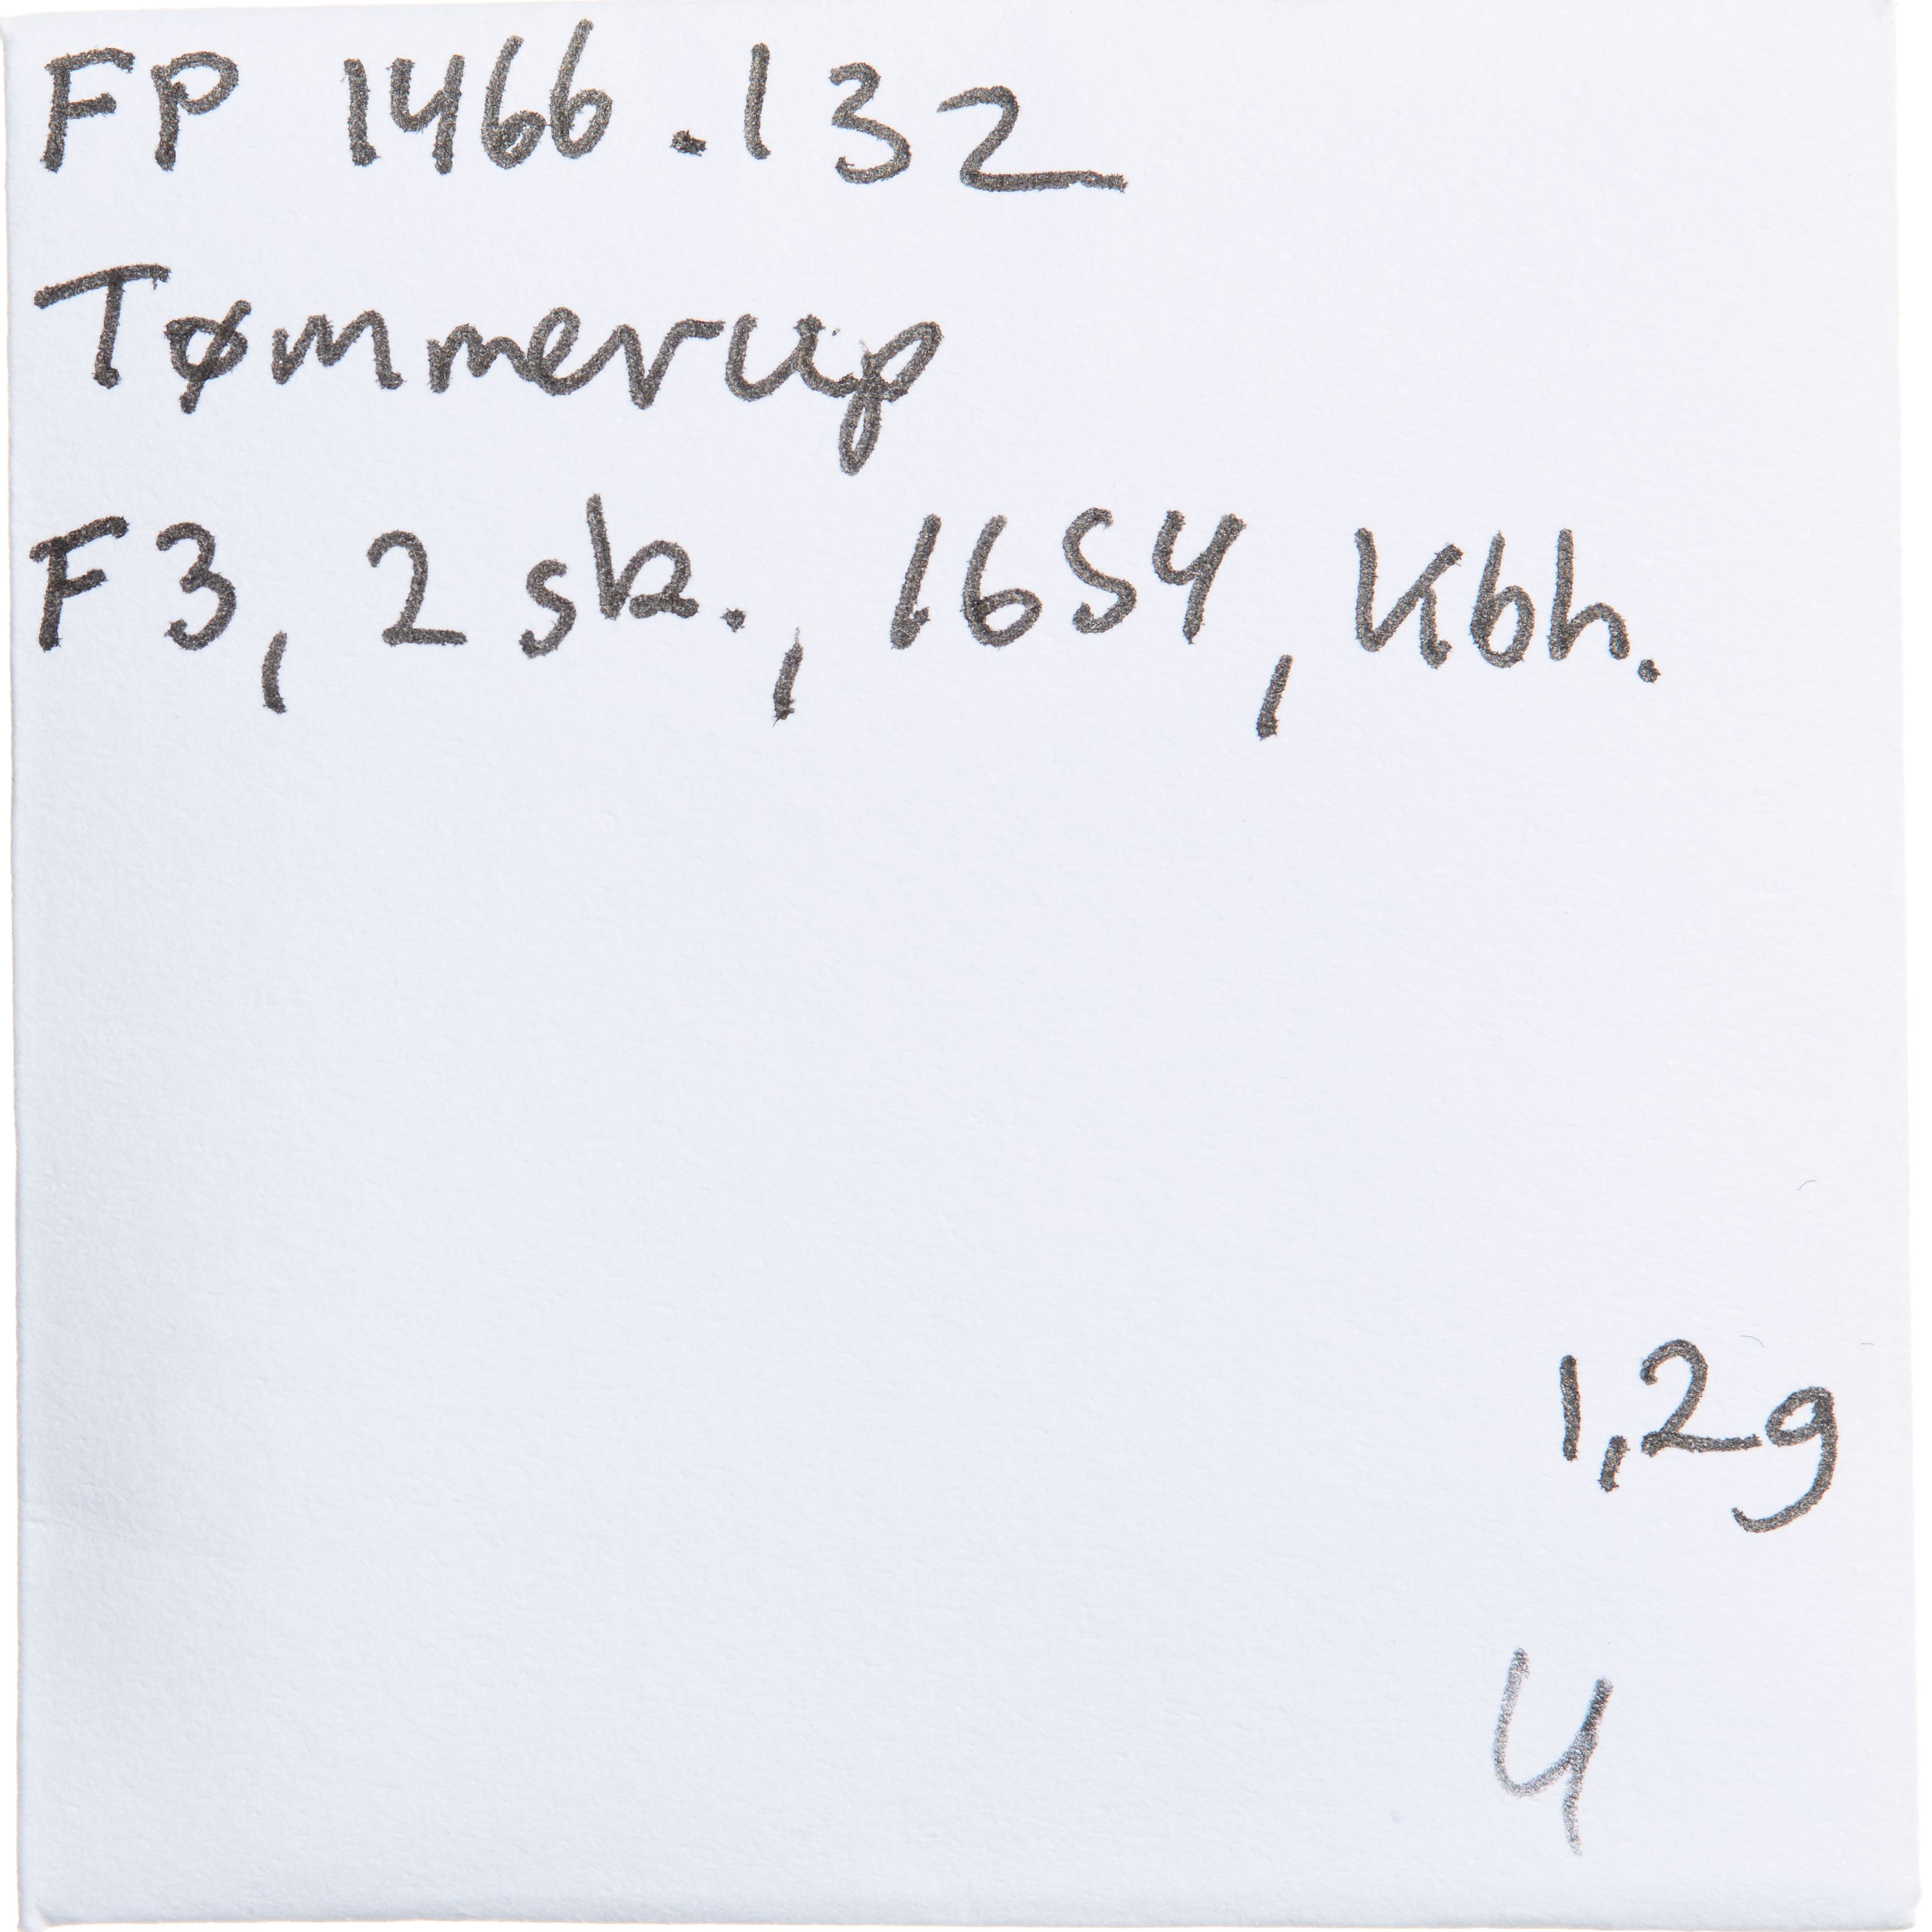 FP 1466.132
Tømmerup
F3, 2 sk., 1654, Kbh.
1,2g
4